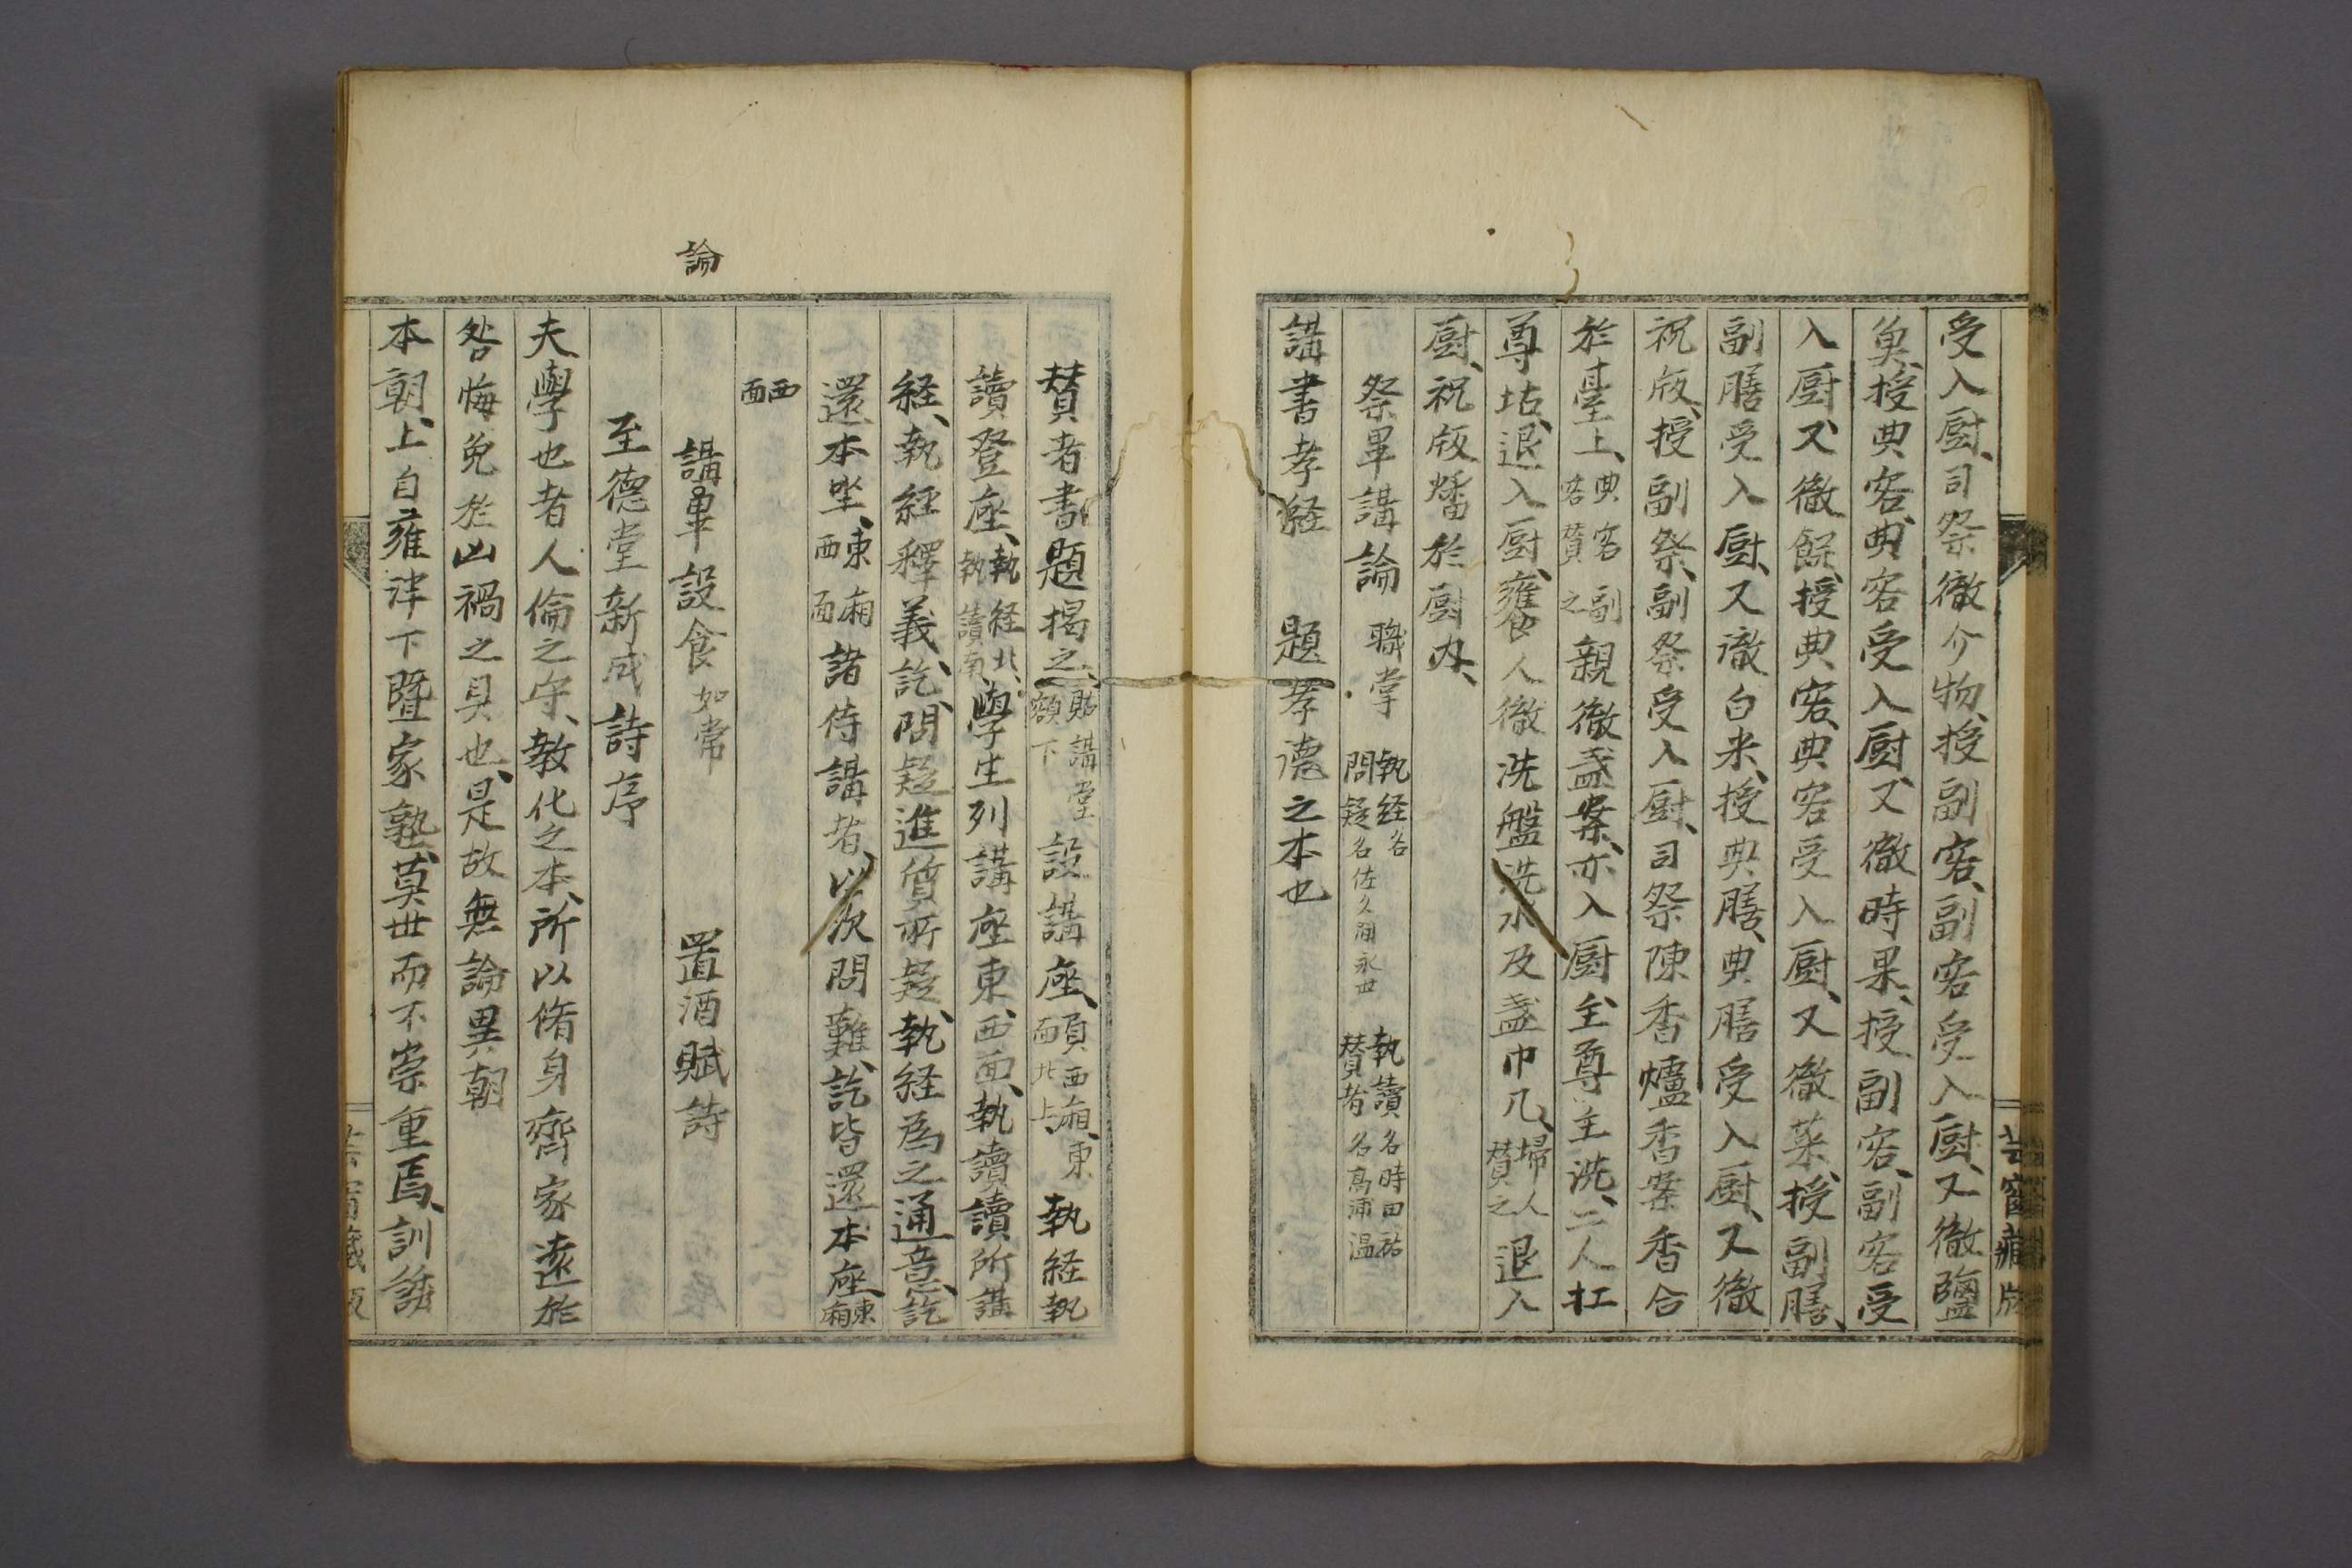 受入厨、司祭徹介物、授副客、副客受入厨、又徹鹽
奠、授典客、典客受入厨、又徹時果、授副客、副客受
入厨、又徹餛、授典客、典客受入厨、又徹菜、授副膳、
副膳受入厨、又徹白米、授典膳、典膳受入厨、又徹
祝版、授副祭、副祭受入厨、司祭陳香爐香案香合
於臺上、典客副
客賛之
親徹盞案、亦入厨、主尊主洗、二人扛
尊坫、退入厨、饔人徹洗盤洗水及盞巾几、掃人
賛之
退入
厨、祝版燔於厨内、
祭畢講論 職掌 執経名
問疑名佐久間永世
執讀名時田祐
賛者名高浦温
講書孝経 題孝德之本也
賛者書題揭之、貼講堂
額下
設講座、頭西廂、東
面北上、
執経執
讀登座、執経北
執讀南
學生列講座東、西面、執讀讀所講
経、執経釋義、訖、問疑進質所疑、執経為之通意、訖
還本坐、東廂
西面
諸侍講者、以次問難、訖皆還本座、東廂
西面
論
講畢設食如常 置酒賦詩
至德堂新成詩序
夫學也者人倫之守、教化之本、所以脩身齊家遠於
咎悔免於凶禍之具也、是故無論異朝
本朝、上自雍泮下暨家塾、莫世而不崇重焉、訓誘
芸窗藏版